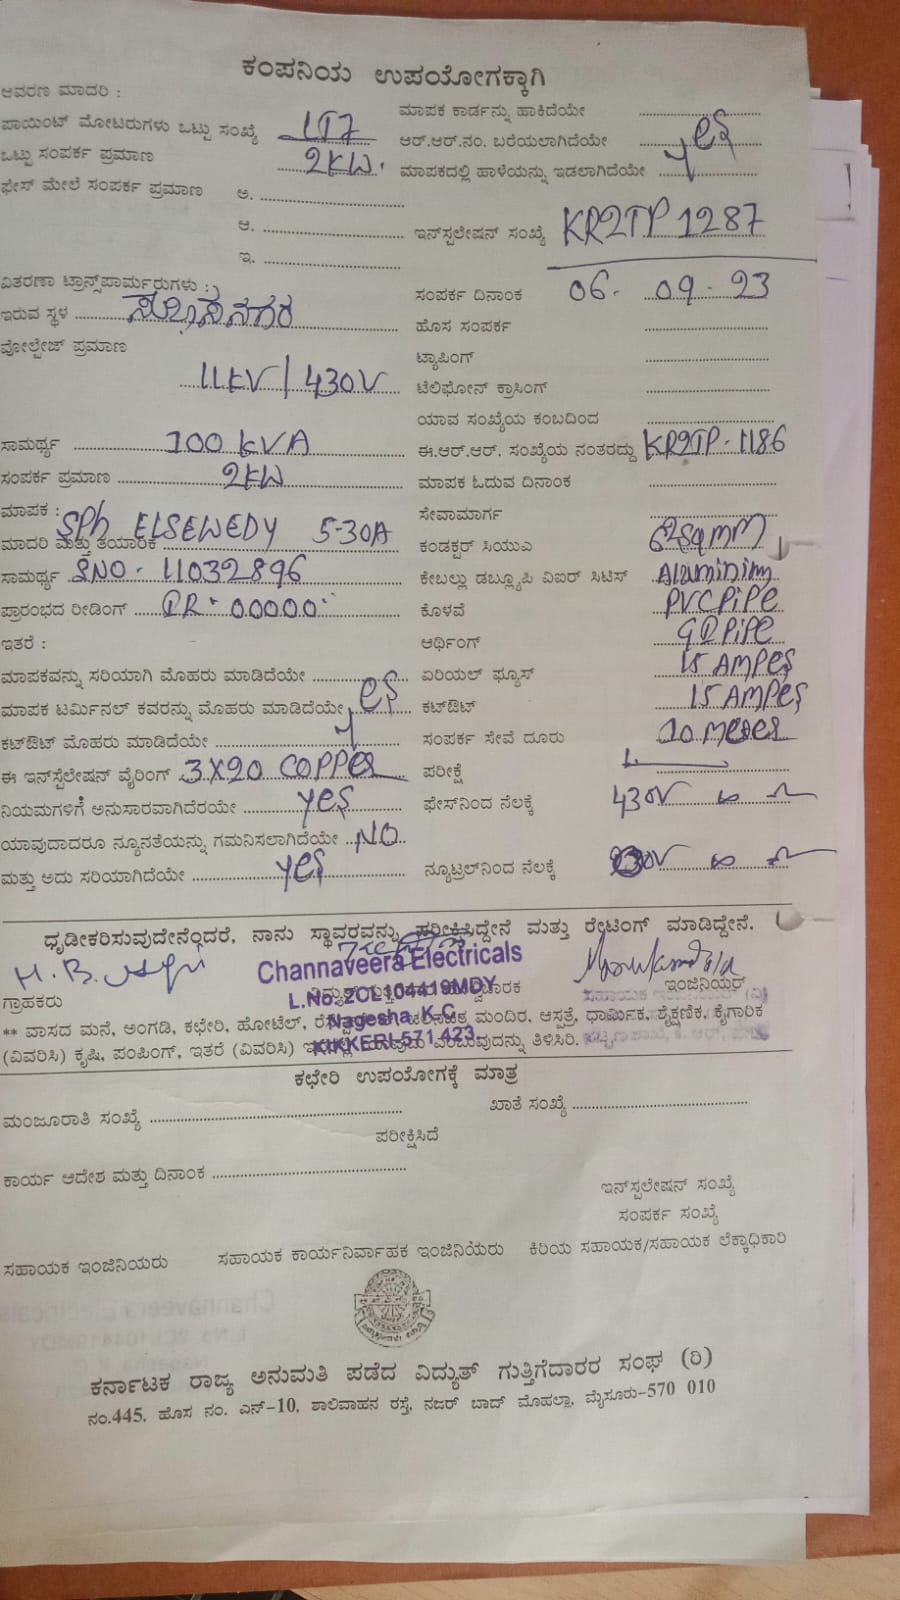 ಕಂಪನಿಯ ಉಪಯೋಗಕ್ಕಾಗಿ
ಆವರಣ ಮಾದರಿ :
ಮಾಪಕ ಕಾರ್ಡನ್ನು ಹಾಕಿದೆಯೇ
ಪಾಯಿಂಟ್ ಮೋಟರುಗಳು ಒಟ್ಟು ಸಂಖ್ಯೆ LT7
ಆರ್.ಆರ್.ನಂ. ಬರೆಯಲಾಗಿದೆಯೇ yes
ಒಟ್ಟು ಸಂಪರ್ಕ ಪ್ರಮಾಣ 2KW.
ಮಾಪಕದಲ್ಲಿ ಹಾಳೆಯನ್ನು ಇಡಲಾಗಿದೆಯೇ
ಫೇಸ್ ಮೇಲೆ ಸಂಪರ್ಕ ಪ್ರಮಾಣ ಅ.
ಆ.
ಇನ್‌ಸ್ಟಲೇಷನ್ ಸಂಖ್ಯೆ KR2TP 1287
ಇ.
ವಿತರಣಾ ಟ್ರಾನ್ಸ್‌ಪಾರ್ಮರುಗಳು :
ಸಂಪರ್ಕ ದಿನಾಂಕ 06. 09. 23
ಇರುವ ಸ್ಥಳ
ಹೊಸ ಸಂಪರ್ಕ
ವೋಲ್ಟೇಜ್ ಪ್ರಮಾಣ
ಟ್ಯಾಪಿಂಗ್
11KV / 430V
ಟೆಲಿಫೋನ್ ಕ್ರಾಸಿಂಗ್
ಯಾವ ಸಂಖ್ಯೆಯ ಕಂಬದಿಂದ
ಸಾಮರ್ಥ್ಯ 100 KVA
ಈ.ಆರ್.ಆರ್. ಸಂಖ್ಯೆಯ ನಂತರದ್ದು KR2TP-1186
ಸಂಪರ್ಕ ಪ್ರಮಾಣ 2KW
ಮಾಪಕ ಓದುವ ದಿನಾಂಕ
ಮಾಪಕ :
ಸೇವಾಮಾರ್ಗ
ಮಾದರಿ ಮತ್ತು ತಯಾರಿಕೆ SPh ELSEWEDY 5-30A
ಕಂಡಕ್ಟರ್ ಸಿಯುಎ
ಸಾಮರ್ಥ್ಯ SNO- 11032896
ಕೇಬಲ್ಲು ಡಬ್ಲ್ಯೂಪಿ ವಿಐರ್ ಸಿಟಿಸ್ Aluminim
ಪ್ರಾರಂಭದ ರೀಡಿಂಗ್ IR- 00000.
ಕೊಳವೆ PVC PiPe
ಇತರೆ :
ಆರ್ಥಿಂಗ್ GI PiPe
ಮಾಪಕವನ್ನು ಸರಿಯಾಗಿ ಮೊಹರು ಮಾಡಿದೆಯೇ
ಏರಿಯಲ್ ಫ್ಯೂಸ್ 15 AMPeS
ಮಾಪಕ ಟರ್ಮಿನಲ್ ಕವರನ್ನು ಮೊಹರು ಮಾಡಿದೆಯೇ yes
ಕಟ್‌ಔಟ್ 15 AMPeS
ಕಟ್‌ಔಟ್ ಮೊಹರು ಮಾಡಿದೆಯೇ
ಸಂಪರ್ಕ ಸೇವೆ ದೂರು
ಈ ಇನ್‌ಸ್ಟೆಲೇಷನ್ ವೈರಿಂಗ್ 3X20 COPPer
ಪರೀಕ್ಷೆ
ನಿಯಮಗಳಿಗೆ ಅನುಸಾರವಾಗಿದೆರಯೇ yes
ಫೇಸ್‌ನಿಂದ ನೆಲಕ್ಕೆ 430V
ಯಾವುದಾದರೂ ನ್ಯೂನತೆಯನ್ನು ಗಮನಿಸಲಾಗಿದೆಯೇ NO
ಮತ್ತು ಅದು ಸರಿಯಾಗಿದೆಯೇ yes
ನ್ಯೂಟ್ರಲ್‌ನಿಂದ ನೆಲಕ್ಕೆ
ಧೃಡೀಕರಿಸುವುದೇನೆಂದರೆ, ನಾನು ಸ್ಥಾವರವನ್ನು ಪರೀಕ್ಷಿಸಿದ್ದೇನೆ ಮತ್ತು ರೇಟಿಂಗ್ ಮಾಡಿದ್ದೇನೆ.
Channaveera Electricals
L.No. 2CL104419MDY
ಗ್ರಾಹಕರು
ಇಂಜಿನಿಯರ್
Nagesha. K.C.
KIKKERI-571 423.
** ವಾಸದ ಮನೆ, ಅಂಗಡಿ, ಕಛೇರಿ, ಹೋಟೆಲ್, ಮಂದಿರ, ಆಸ್ಪತ್ರೆ, ಧಾರ್ಮಿಕ, ಶೈಕ್ಷಣಿಕ, ಕೈಗಾರಿಕ
(ವಿವರಿಸಿ) ಕೃಷಿ, ಪಂಪಿಂಗ್, ಇತರೆ (ವಿವರಿಸಿ) ಎಂಬುವುದನ್ನು ತಿಳಿಸಿರಿ.
ಕಛೇರಿ ಉಪಯೋಗಕ್ಕೆ ಮಾತ್ರ
ಮಂಜೂರಾತಿ ಸಂಖ್ಯೆ
ಖಾತೆ ಸಂಖ್ಯೆ
ಪರೀಕ್ಷಿಸಿದೆ
ಕಾರ್ಯ ಆದೇಶ ಮತ್ತು ದಿನಾಂಕ
ಇನ್‌ಸ್ಪಲೇಷನ್ ಸಂಖ್ಯೆ
ಸಂಪರ್ಕ ಸಂಖ್ಯೆ
ಸಹಾಯಕ ಇಂಜಿನಿಯರು
ಸಹಾಯಕ ಕಾರ್ಯನಿರ್ವಾಹಕ ಇಂಜಿನಿಯರು
ಕಿರಿಯ ಸಹಾಯಕ/ಸಹಾಯಕ ಲೆಕ್ಕಾಧಿಕಾರಿ
ಕರ್ನಾಟಕ ರಾಜ್ಯ ಅನುಮತಿ ಪಡೆದ ವಿದ್ಯುತ್ ಗುತ್ತಿಗೆದಾರರ ಸಂಘ (ರಿ)
ನಂ.445, ಹೊಸ ನಂ. ಎನ್-10, ಶಾಲಿವಾಹನ ರಸ್ತೆ, ನಜರ್ ಬಾದ್ ಮೊಹಲ್ಲಾ, ಮೈಸೂರು-570 010